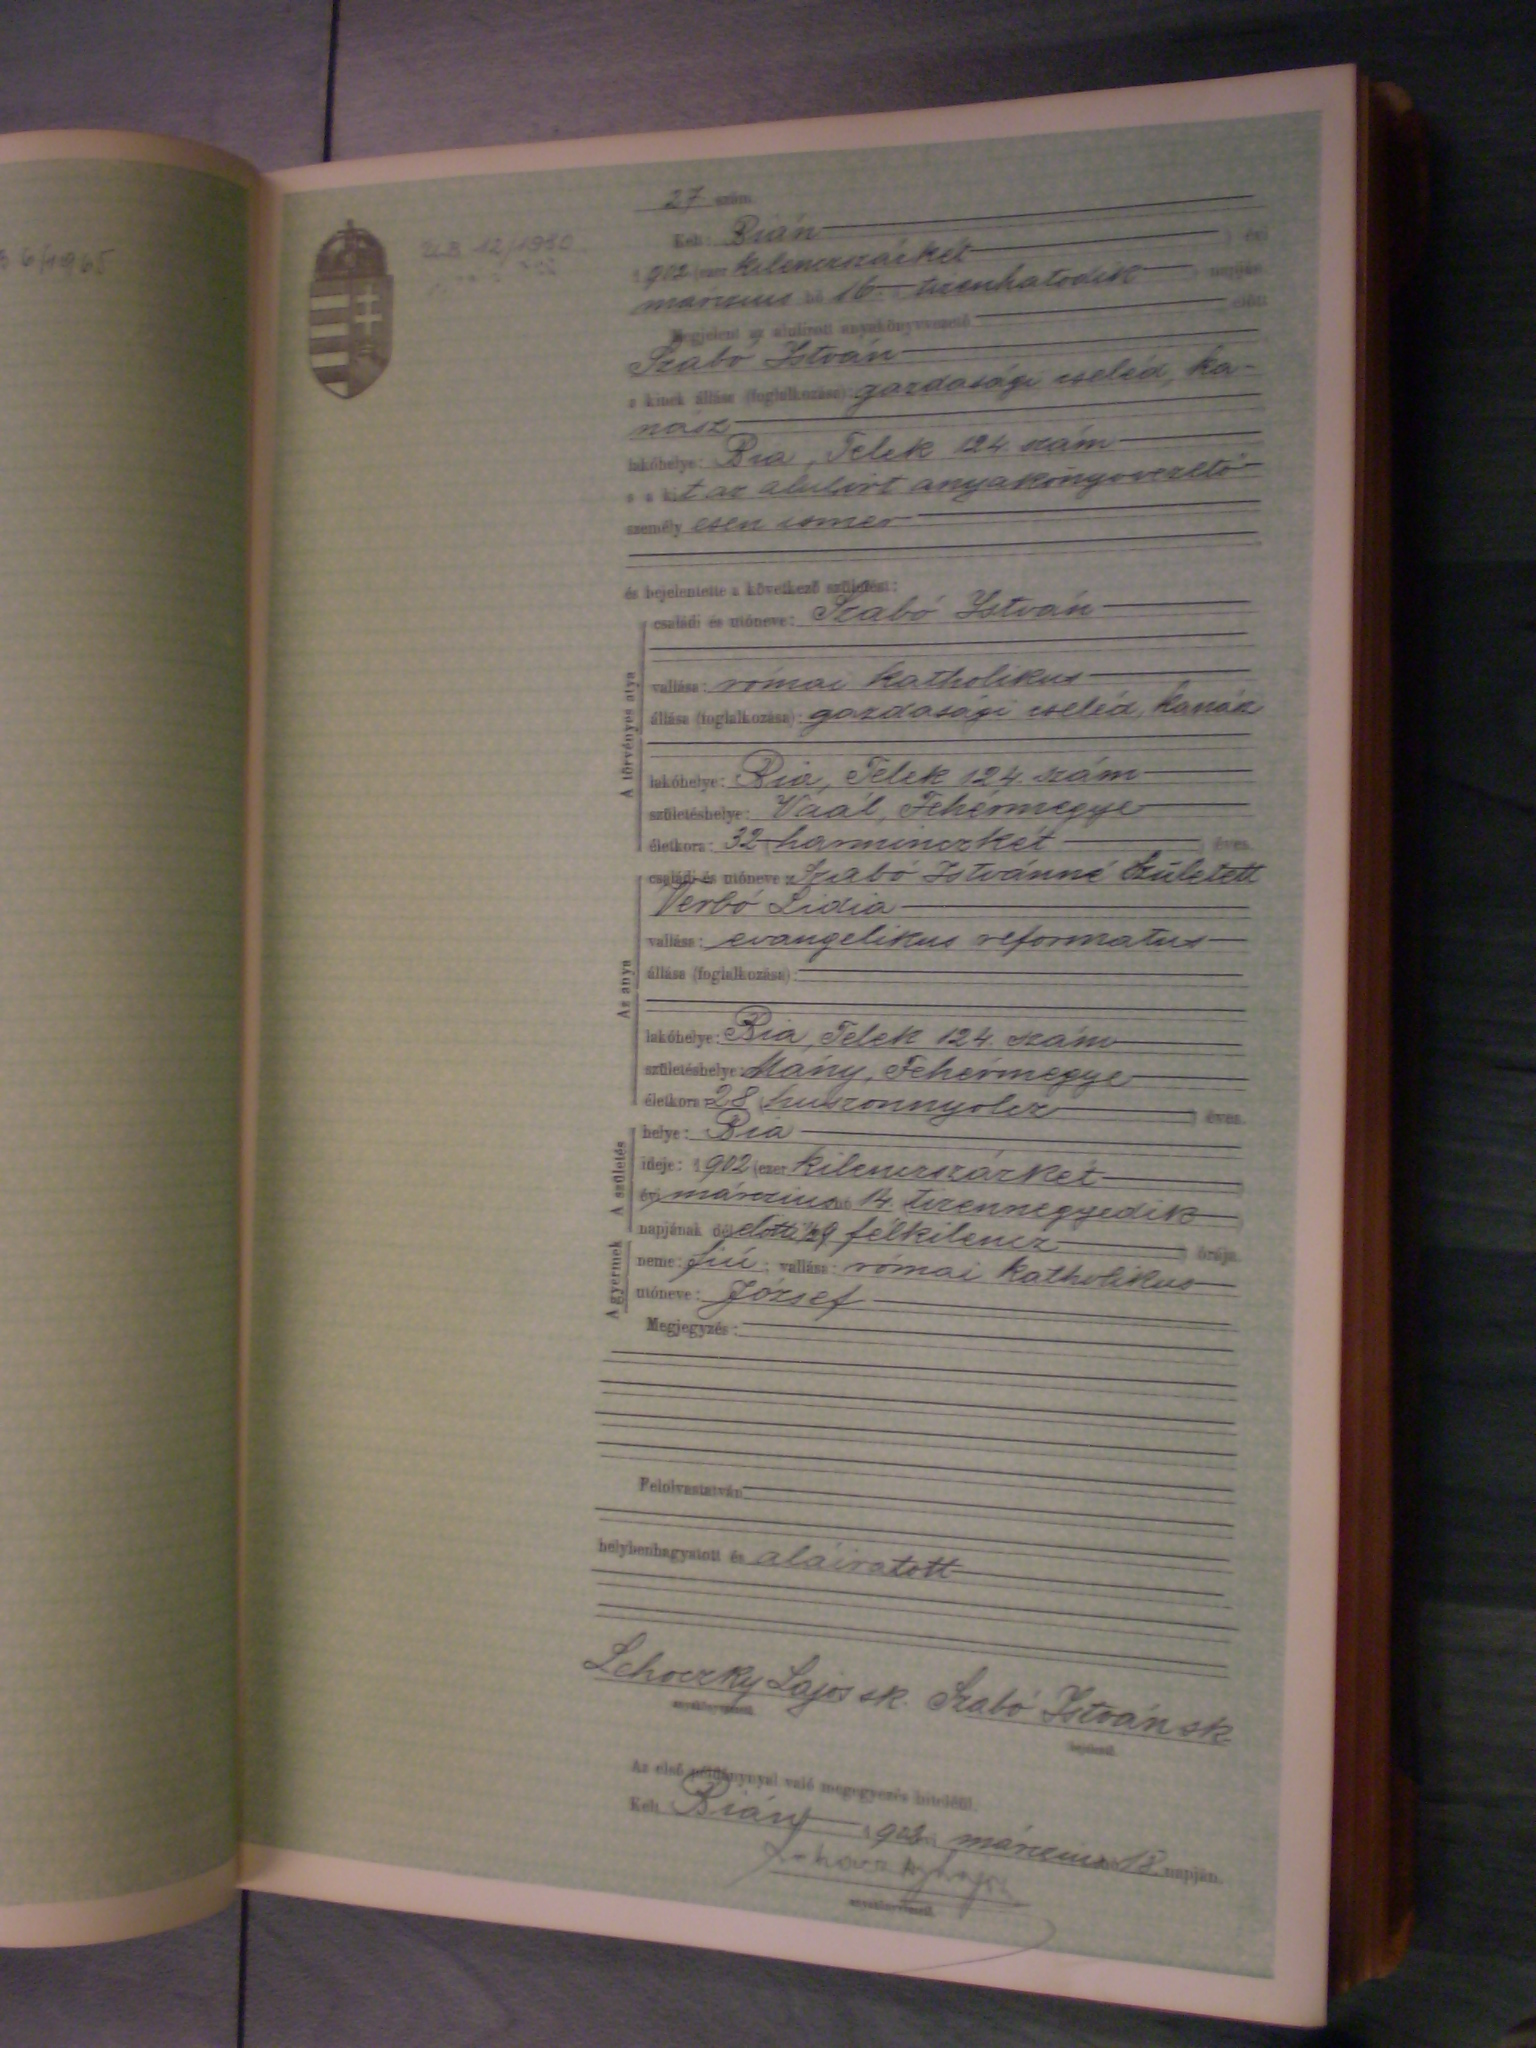 27 szám
Kelt: Bián
1902 (ezer kilenczszázkét) évi
márczius hó 16. tizenhatodik napján
Megjelent az alulírott anyakönyvvezető előtt
Szabó István
a kinek állása (foglalkozása): gazdasági cseléd, ka-
nász
lakóhelye: Bia, Telek 124. szám
s a kit az alulírt anyakönyvvezető
személyesen ismer
és bejelentette a következő születést:
A törvényes atya
családi és utóneve: Szabó István
vallása: római katholikus
állása (foglalkozása): gazdasági cseléd, kanász
lakóhelye: Bia, Telek 124. szám
születéshelye: Vaál, Fehérmegye
életkora: 32 (harminczkét) éves
Az anya
családi és utóneve: Szabó Istvánné született
Verbó Lidia
vallása: evangelikus reformatus
állása (foglalkozása):
lakóhelye: Bia, Telek 124. szám
születéshelye: Mány, Fehérmegye
életkora: 28 (huszonnyolcz) éves
A születés
helye: Bia
ideje: 1902 (ezer kilenczszázkét)
évi márczius hó 14. tizennegyedik
napjának délelőtti ½9 félkilencz) órája
A gyermek
neme: fiú; vallása: római katholikus
utóneve: József
Megjegyzés:
Felolvastatván
helybenhagyatott és aláiratott
Lehoczky Lajos sk. Szabó István sk.
anyakönyvvezető. bejelentő.
Az első példánynyal való megegyezés hiteléül.
Kelt Bián, 1902 márczius hó 18 napján.
Lehoczky Lajos
anyakönyvvezető.
6/1965
12/1960